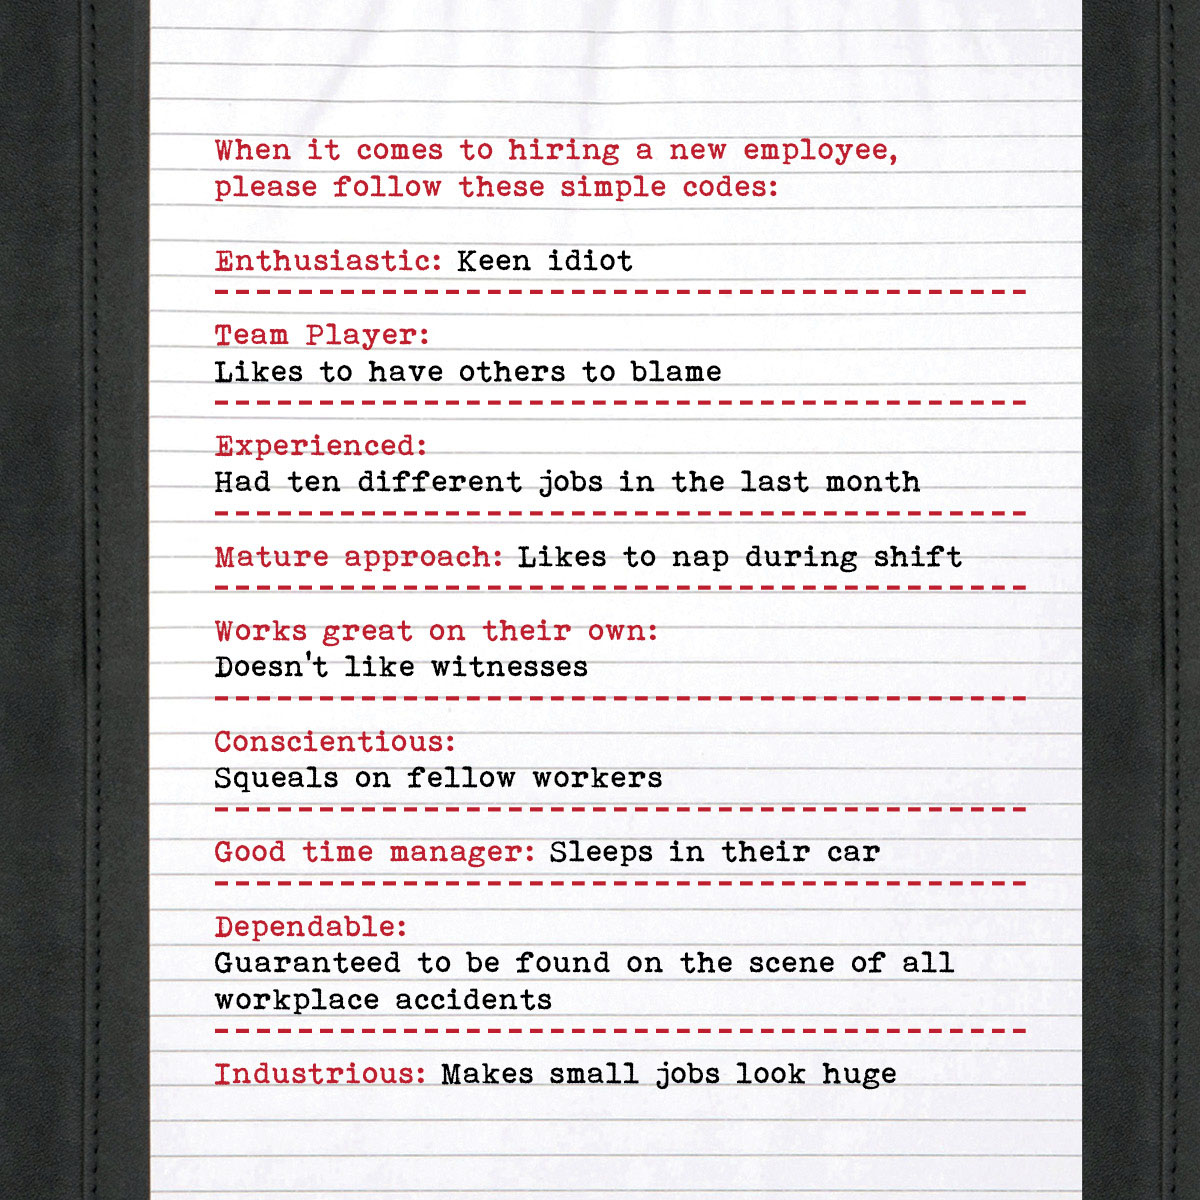 When it comes to hiring a new employee,
please follow these simple codes:
Enthusiastic: Keen idiot
Team Player:
Likes to have others to blame
Experienced:
Had ten different jobs in the last month
Mature approach: Likes to nap during shift
Works great on their own:
Doesn't like witnesses
Conscientious:
Squeals on fellow workers
Good time manager: Sleeps in their car
Dependable:
Guaranteed to be found on the scene of all
workplace accidents
Industrious: Makes small jobs look huge